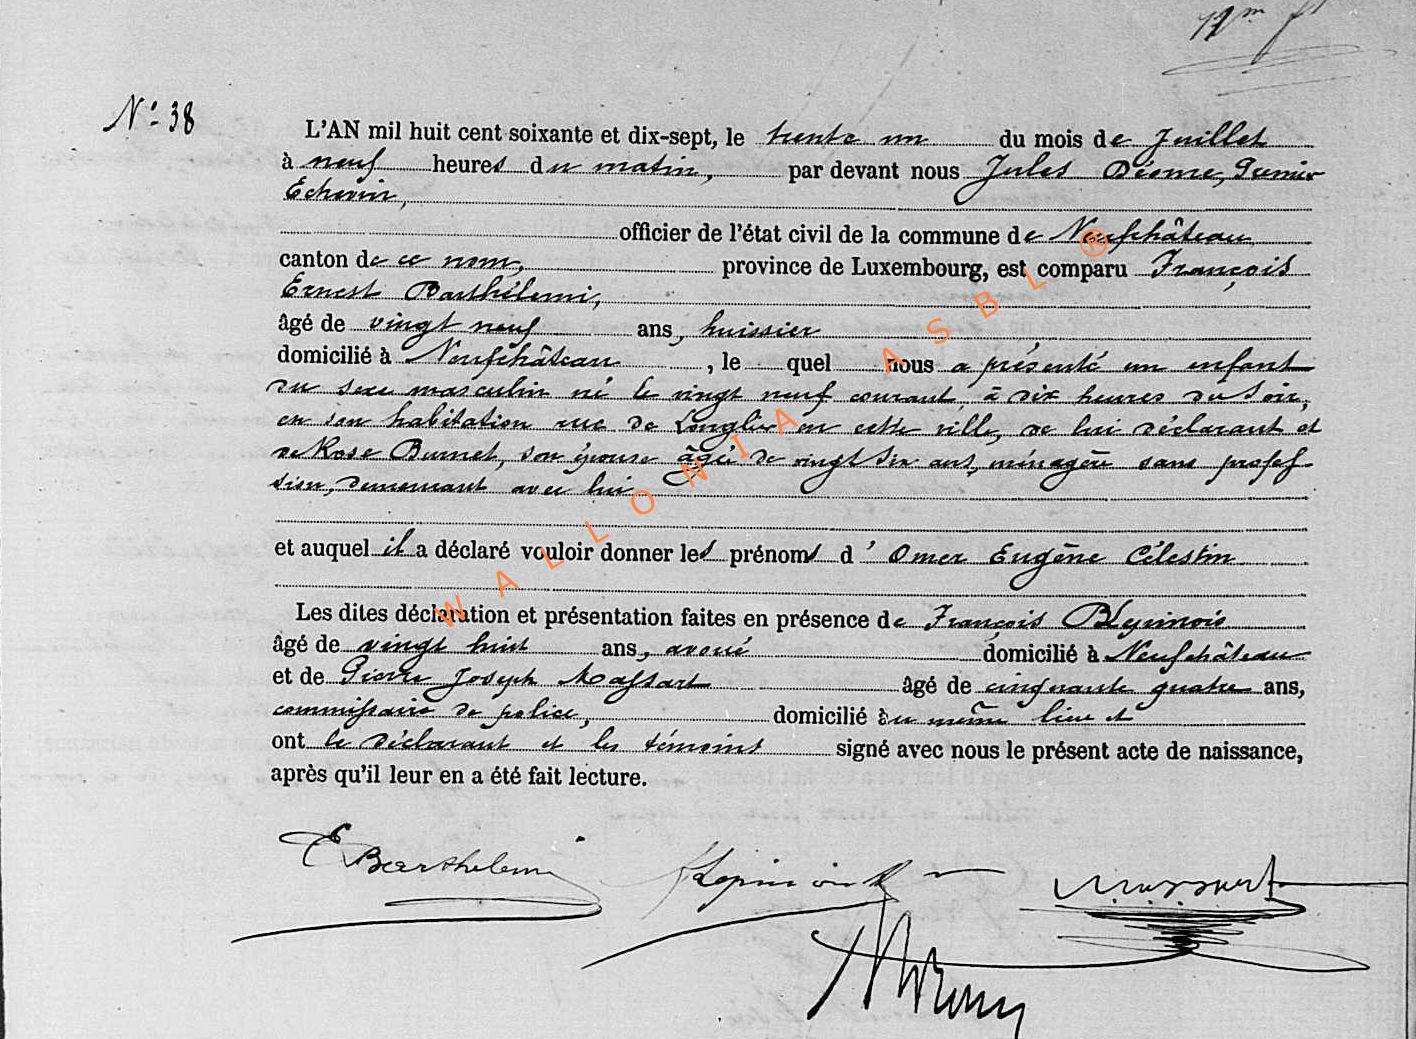 Nº 38
L'AN mil huit cent soixante et dix-sept, le trente un du mois de Juillet
à neuf heures du matin, par devant nous Jules Premier
Echevin,
officier de l'état civil de la commune de Neufchâteau
canton de ce nom, province de Luxembourg, est comparu François
Ernest Barthélemi,
âgé de vingt neuf ans, huissier
domicilié à Neufchâteau, le quel nous a présenté un enfant
du sexe masculin né le vingt neuf courant, à dix heures du soir,
en son habitation rue de Longlier en cette ville, de lui déclarant et
de Rose Burnet, son épouse âgée de vingt six ans, ménagère sans profes-
sion, demeurant avec lui
et auquel il a déclaré vouloir donner les prénoms d'Omer Eugène Célestin
Les dites déclaration et présentation faites en présence de François
âgé de vingt huit ans, avoué domicilié à Neufchâteau
et de Pierre Joseph Massart âgé de cinquante quatre ans,
commissaire de police, domicilié au même lieu et
ont le déclarant et les témoins signé avec nous le présent acte de naissance,
après qu'il leur en a été fait lecture.
E Barthelemi
Massart
WALLONIA ASBL ®